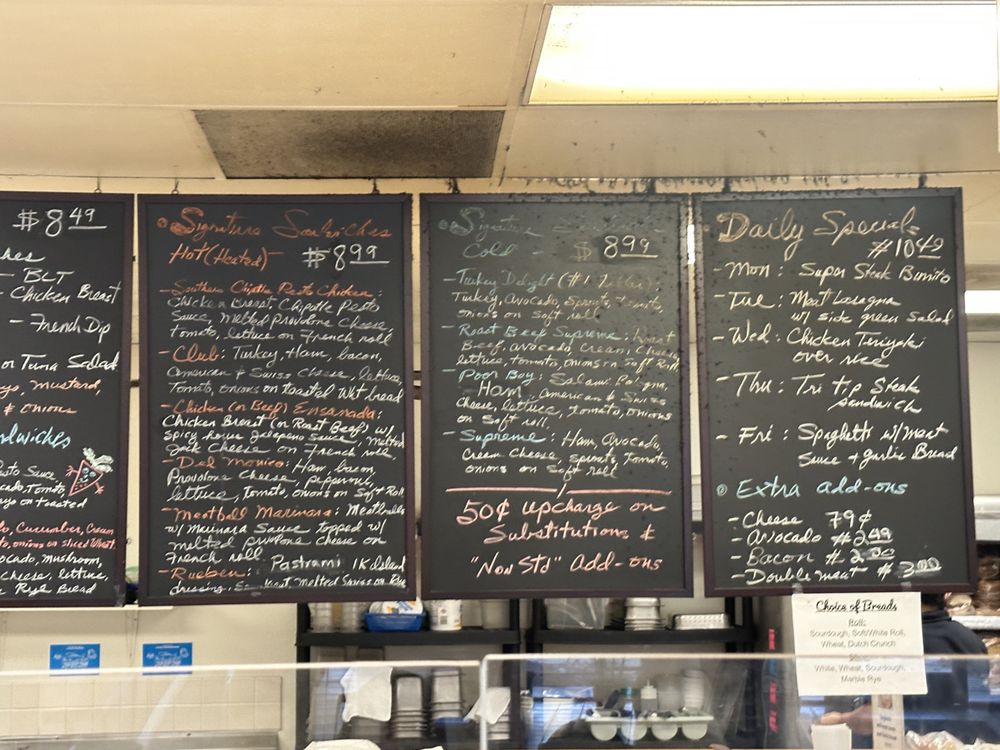 $8.49
- BLT
- Chicken Breast
- French Dip
or Tuna Salad
mustard,
& onions
Pesto Sauce
Tomato,
on toasted
Cucumber, Cream
onions on sliced Wheat
mushroom,
cheese, lettuce,
Rye Bread
Signature Sandwiches
Hot (Heated) $8.99
- Southern Chipotle Pesto Chicken:
Chicken Breast Chipotle Pesto
Sauce, Melted Provolone Cheese,
Tomato, lettuce on French roll
- Club: Turkey, Ham, bacon,
American & Swiss cheese, lettuce,
Tomato, onions on toasted Wht bread
- Chicken (or Beef) Ensanada:
Chicken Breast (or Roast Beef) w/
spicy house Jalapeno sauce, melted
Jack Cheese on French roll
- Del Monico: Ham, bacon,
Provolone Cheese, pepperoni,
lettuce, Tomato, onions on Soft Roll
- Meatball Marinara: Meatballs
w/ Marinara Sauce topped w/
melted provolone cheese on
French roll
- Rueben: Pastrami 1K island
dressing, melted Swiss on Rye
Signature
Cold $8.99
- Turkey Delight (#1 Seller):
Turkey, Avocado, Sprouts, tomato,
onions on Soft roll
- Roast Beef Supreme: Roast
Beef, avocado, Cream Cheese,
lettuce, tomato, onions on Soft Roll
- Poor Boy: Salami, Bologna,
Ham, American & Swiss
Cheese, lettuce, tomato, onions
on Soft roll.
- Supreme: Ham, Avocado,
Cream Cheese, Sprouts, Tomato,
onions on Soft roll
50¢ upcharge on
Substitutions &
"Non Std" Add-ons
Daily Specials
$10.49
- Mon: Super Steak Burrito
- Tue: Meat Lasagna
w/ side green Salad
- Wed: Chicken Teriyaki
over rice
- Thu: Tri tip Steak
sandwich
- Fri: Spaghetti w/ Meat
Sauce + garlic Bread
Extra add-ons
- Cheese 79¢
- Avocado $2.49
- Bacon $2.00
- Double meat $3.00
Choice of Breads
Roll:
Sourdough, Soft/White Roll,
Wheat, Dutch Crunch
White, Wheat, Sourdough,
Marble Rye